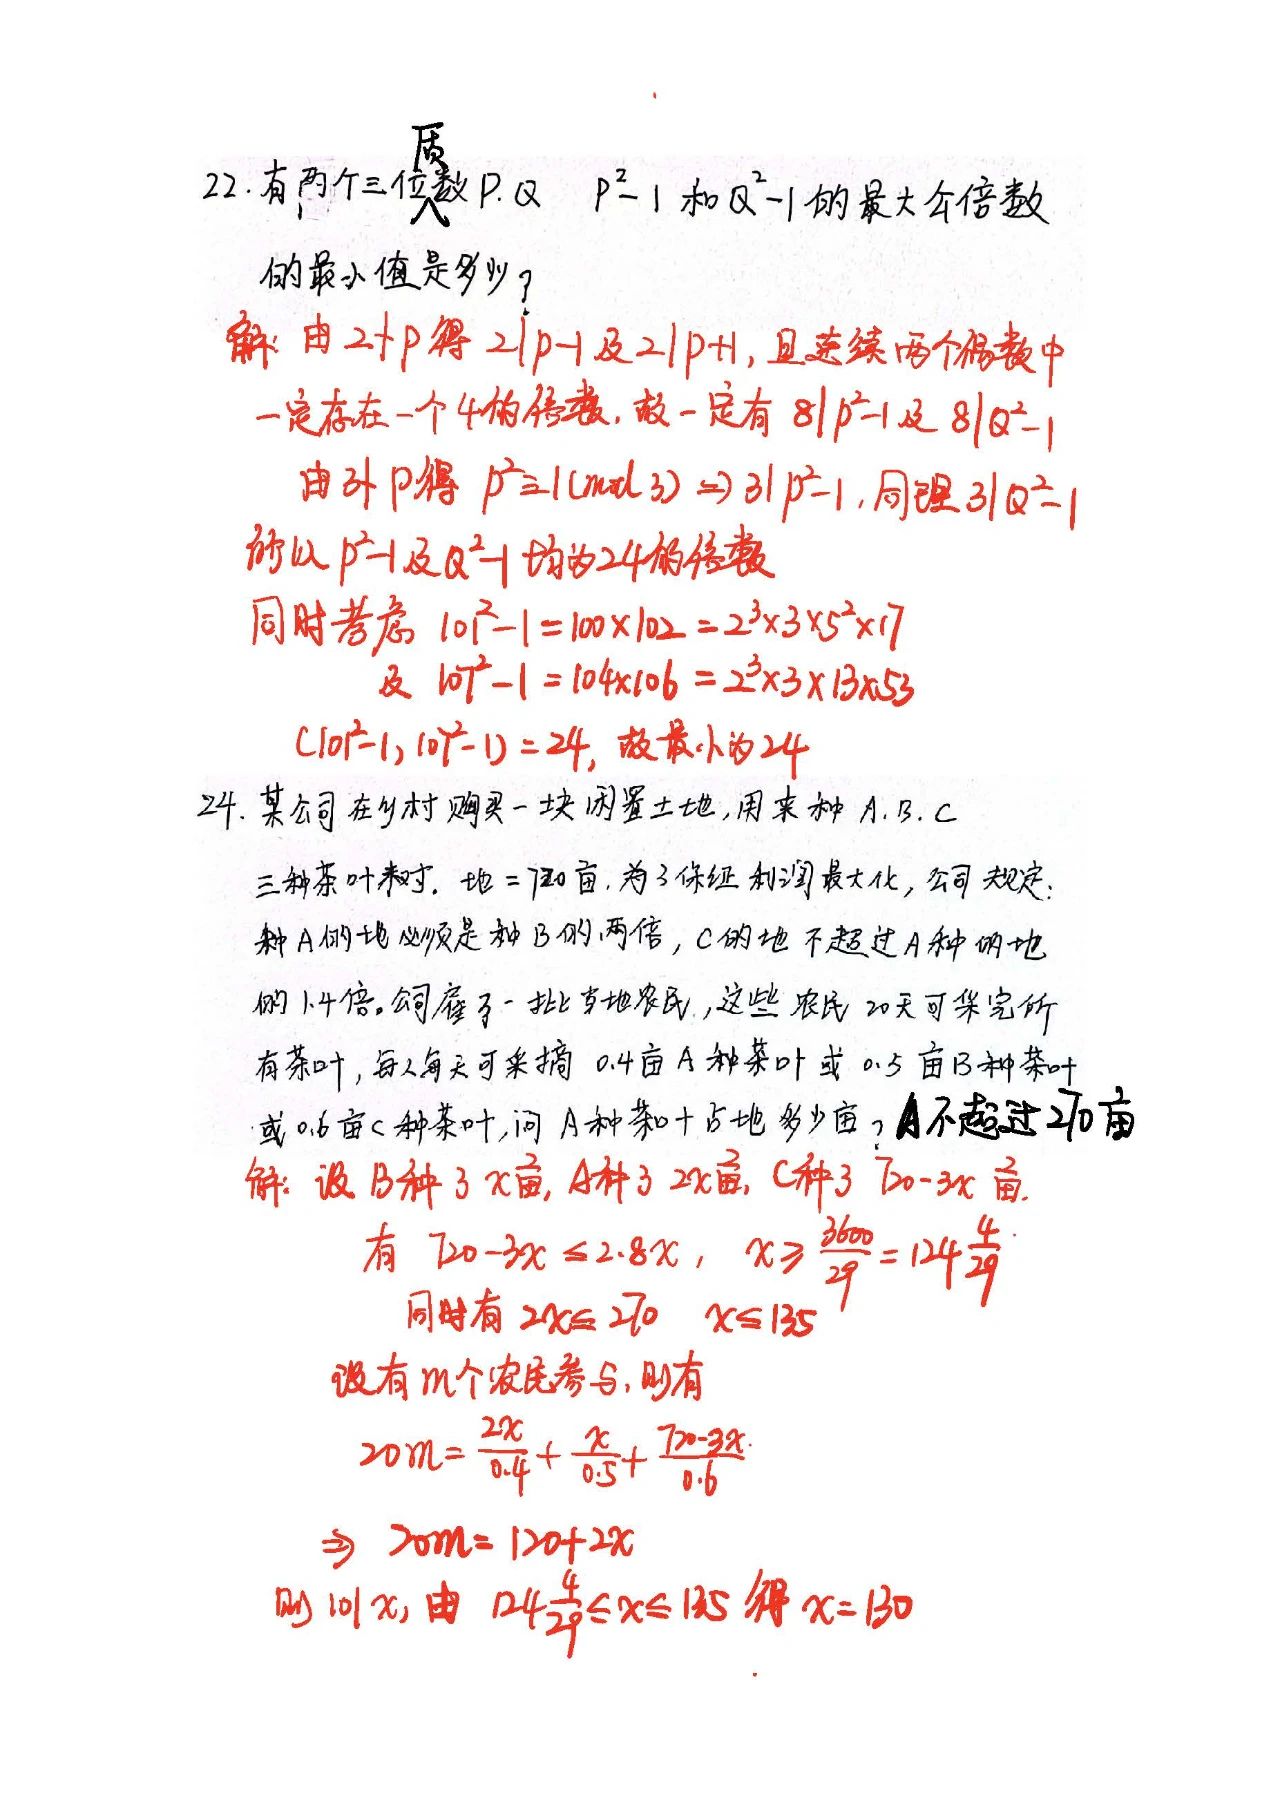 质
22.有两个三位数P.Q P²-1和Q²-1的最大公倍数
的最小值是多少?
解:由2∤p得2|p-1及2|p+1,且连续两个偶数中
一定存在一个4的倍数.故一定有8|p²-1及8|Q²-1
由3∤p得 p²≡1(mod 3)⇒3|p²-1,同理3|Q²-1
所以p²-1及Q²-1均为24的倍数
同时考虑 101²-1=100×102=2³×3×5²×17
及 107²-1=104×106=2³×3×13×53
(101²-1,107²-1)=24,故最小为24
24.某公司在乡村购买一块闲置土地,用来种A.B.C
三种茶叶树.地=720亩.为了保证利润最大化,公司规定:
种A的地必须是种B的两倍,C的地不超过A种的地
的1.4倍。公司雇了一批当地农民,这些农民20天可采完所
有茶叶,每人每天可采摘0.4亩A种茶叶或0.5亩B种茶叶
或0.6亩C种茶叶,问A种茶叶占地多少亩?A不超过270亩
解:设B种了x亩,A种了2x亩,C种了720-3x亩.
有 720-3x≤2.8x, x≥3600/29=124 4/29
同时有2x≤270 x≤135
设有m个农民参与,则有
20m=2x/0.4+x/0.5+720-3x/0.6
⇒ 20m=120+2x
则10|x,由 124 4/29≤x≤135得x=130